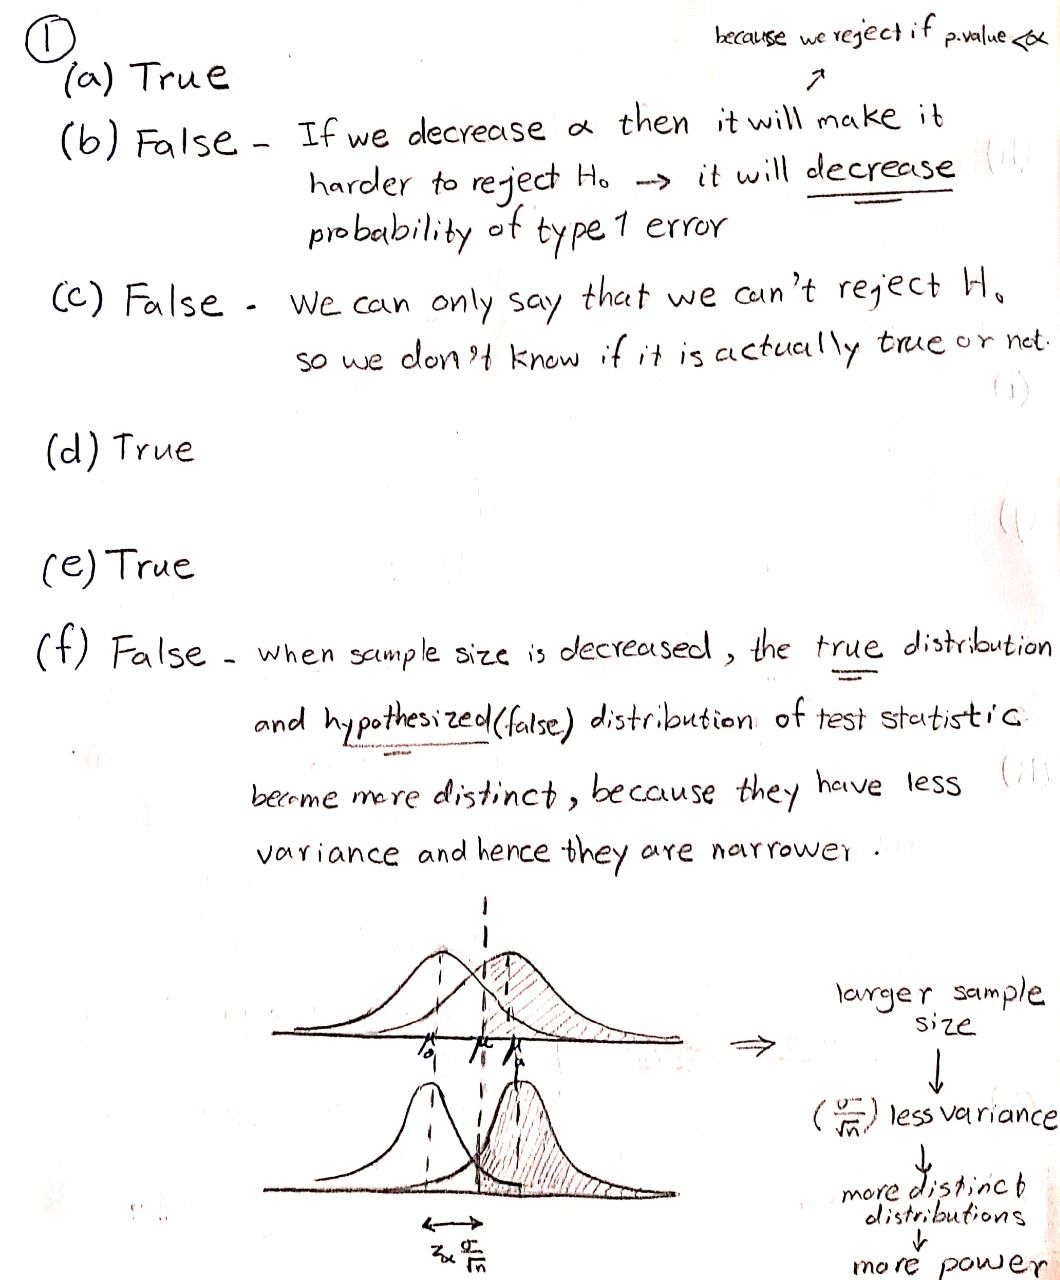 ①
because we reject if p.value <α
(a) True
(b) False - If we decrease α then it will make it
harder to reject H₀ → it will decrease
probability of type 1 error
(c) False - We can only say that we can't reject H₀
so we don't know if it is actually true or not.
(d) True
(e) True
(f) False - when sample size is decreased, the true distribution
and hypothesized (false) distribution of test statistic
become more distinct, because they have less
variance and hence they are narrower.
μ₀ μ μₐ
larger sample
size
(σ/√n) less variance
more distinct
distributions
more power
zα σ/√n